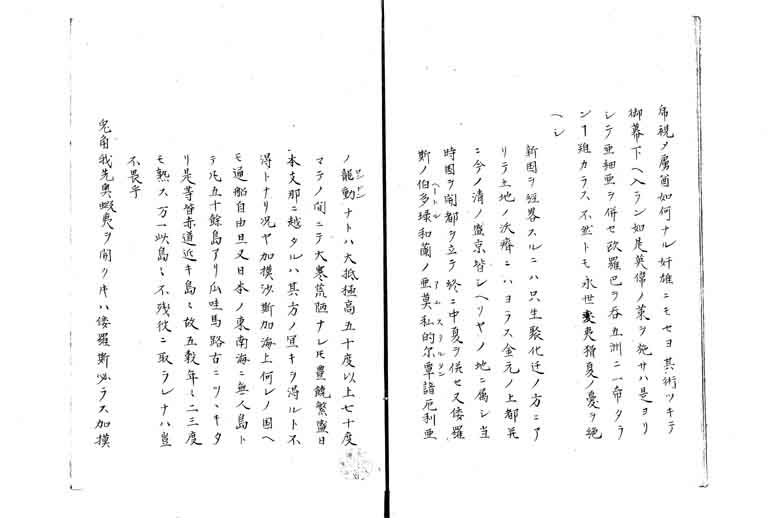 帝視メ虜酋如何ナル奸雄ニモセヨ其術ツキテ
御幕下ヘ入ラン如是英偉ノ業ヲ施サハ是ヨリ
シテ亜細亜ヲ併セ欧羅巴ヲ呑五洲ニ一帝タラ
ンヿ難カラス不然トモ永世蠻夷猾夏ノ憂ヲ絶
ヘシ
新国ヲ経畧スルニハ只生聚化迁ノ方ニア
リテ土地ノ沃瘠ニハヨラス金元ノ上都并
ニ今ノ清ノ盛京皆シヘリヤノ地ニ属シ当
時国ヲ開都ヲ立テ終ニ中夏ヲ併セ又倭羅
斯ノ伯多琭和蘭ノ亜莫私的尓覃諳厄利亜
ヘートル アムステルタン
ノ龍動ナトハ大抵極高五十度以上七十度
ロンドン
マテノ間ニテ大寒荒陋ナレ𪜈豊饒繁盛日
本支那ニ越タルハ其方ノ宜キヲ得ルト不
得トナリ况ヤ加摸沙斯加海上何レノ国ヘ
モ通船自由且又日本ノ東南海ニ無人島ト
テ凡五十餘島アリ瓜哇馬路古ニツヽキタ
リ是等皆赤道近キ島〻故五穀年〻二三度
モ熟ス万一此島〻不残彼ニ取ラレナハ豈
不畏乎
兎角我先奥蝦夷ヲ開クキハ倭羅斯必ラス加摸